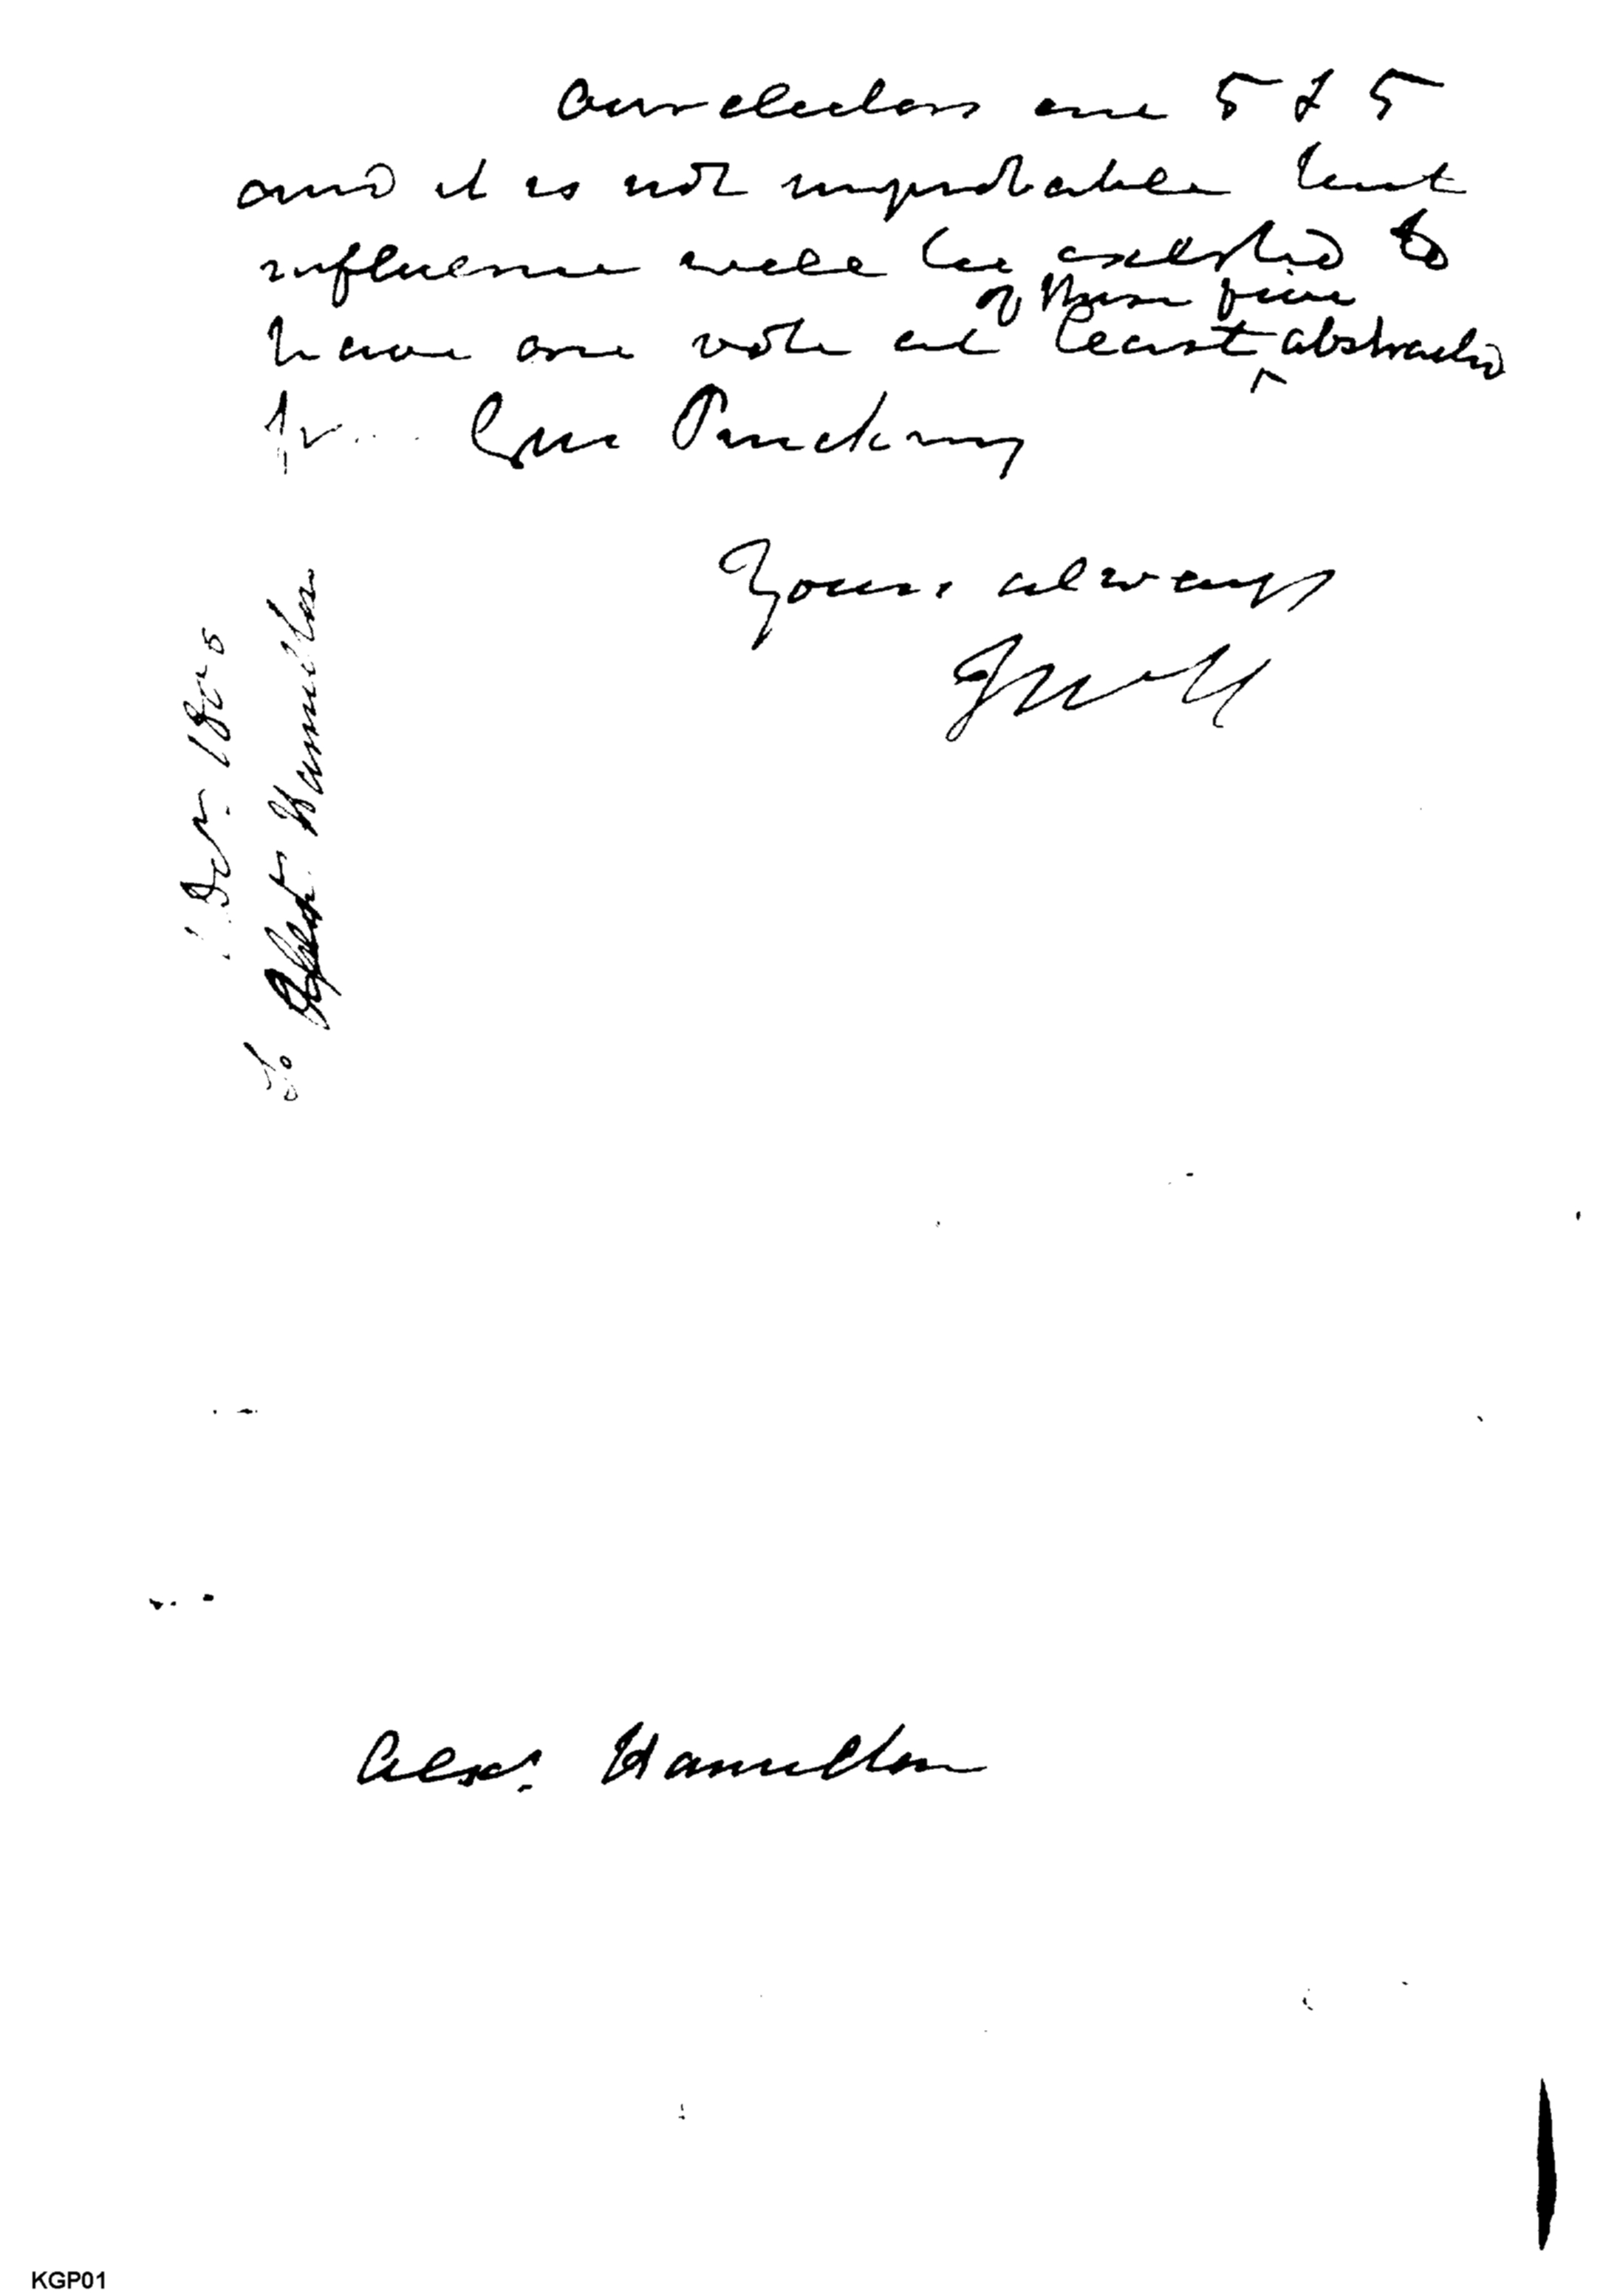 Our electors are 5 & 5
and it is not improbable but
influence will be exerted to
of these five
have one vote at least ^ abstracted
Gen Pinckney
Yours always
Dec. 1800
To Alexr. Hamilton
Alexr. Hamilton
KGP01